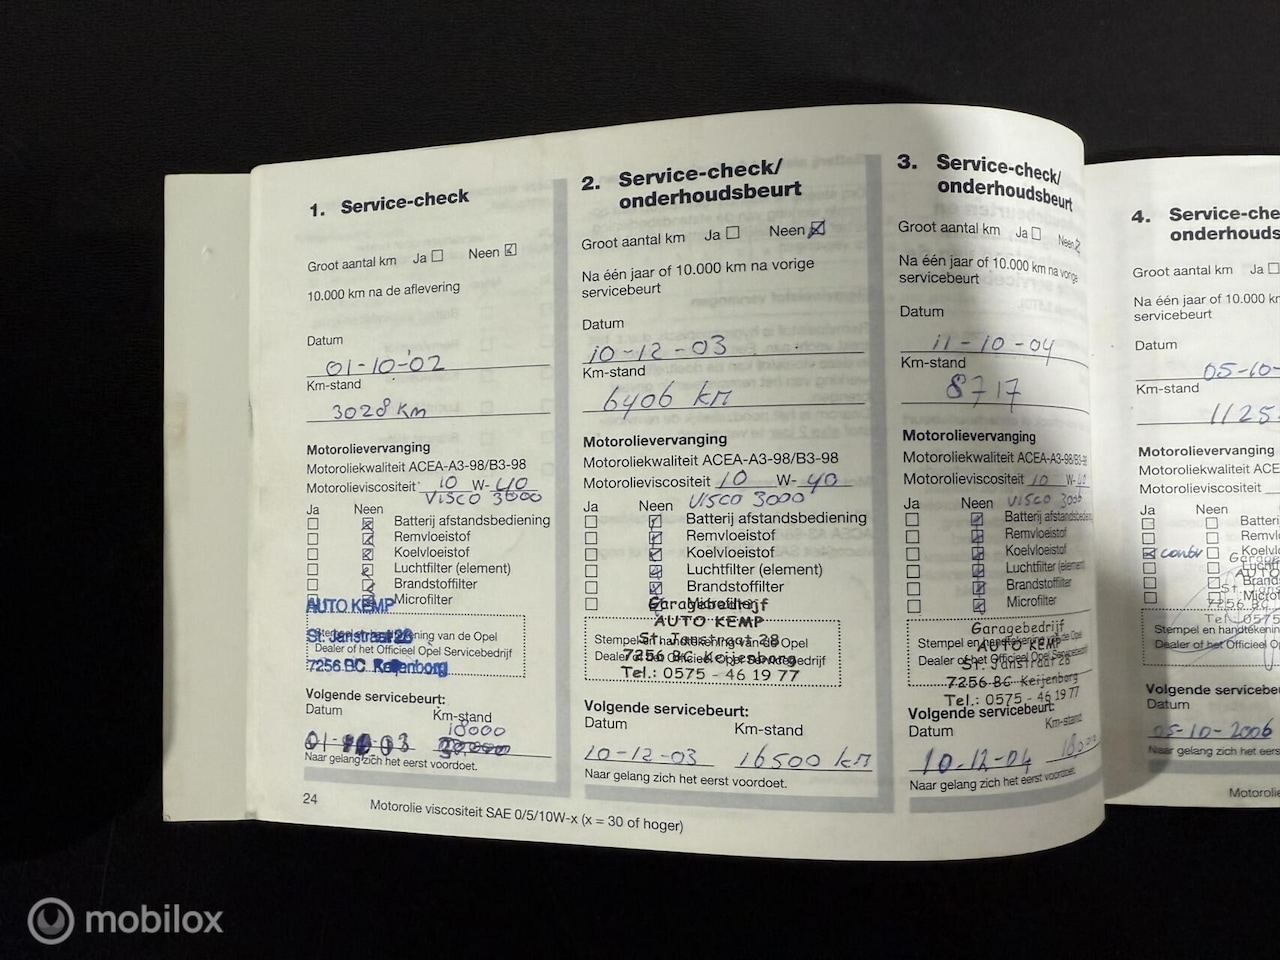 1. Service-check
Groot aantal km Ja Neen
10.000 km na de aflevering
Datum
01-10-'02
Km-stand
3028 km
Motorolievervanging
Motoroliekwaliteit ACEA-A3-98/B3-98
Motorolieviscositeit 10 W-40
VISCO 3000
Ja Neen
Batterij afstandsbediening
Remvloeistof
Koelvloeistof
Luchtfilter (element)
Brandstoffilter
Microfilter
AUTO KEMP
St. Janstraat 28
Dealer of het Officieel Opel Servicebedrijf
7256 BC Keijenborg
Volgende servicebeurt:
Datum Km-stand
10000
Naar gelang zich het eerst voordoet.
24
Motorolie viscositeit SAE 0/5/10W-x (x = 30 of hoger)
2. Service-check/
onderhoudsbeurt
Groot aantal km Ja Neen
Na één jaar of 10.000 km na vorige
servicebeurt
Datum
10-12-03
Km-stand
6406 km
Motorolievervanging
Motoroliekwaliteit ACEA-A3-98/B3-98
Motorolieviscositeit 10 W-40
VISCO 3000
Ja Neen
Batterij afstandsbediening
Remvloeistof
Koelvloeistof
Luchtfilter (element)
Brandstoffilter
Microfilter
Garagebedrijf
AUTO KEMP
St. Janstraat 28
Stempel en handtekening van de Opel
7256 BC Keijenborg
Dealer of het Officieel Opel Servicebedrijf
Tel.: 0575 - 46 19 77
Volgende servicebeurt:
Datum Km-stand
10-12-03 16500 km
Naar gelang zich het eerst voordoet.
3. Service-check/
onderhoudsbeurt
Groot aantal km Ja Neen
Na één jaar of 10.000 km na vorige
servicebeurt
Datum
11-10-04
Km-stand
8717
Motorolievervanging
Motoroliekwaliteit ACEA-A3-98/B3-98
Motorolieviscositeit 10 W-40
VISCO 3000
Ja Neen
Batterij afstandsbediening
Remvloeistof
Koelvloeistof
Luchtfilter (element)
Brandstoffilter
Microfilter
Garagebedrijf
Stempel en handtekening van de Opel
AUTO KEMP
Dealer of het Officieel Opel Servicebedrijf
St. Janstraat 28
7256 BC Keijenborg
Tel.: 0575 - 46 19 77
Volgende servicebeurt:
Datum Km-stand
10-12-04
Naar gelang zich het eerst voordoet.
4. Service-che
onderhouds
Groot aantal km Ja
Na één jaar of 10.000 k
servicebeurt
Datum
05-10-
Km-stand
1125
Motorolievervanging
Motoroliekwaliteit ACE
Motorolieviscositeit
Ja Neen
Batteri
Remvlo
Koelvlo
AUTO
7256 BC
Tel.: 0575
Stempel en handtekenin
Dealer of het Officieel O
Volgende servicebeu
Datum
05-10-2006
Naar gelang zich het eers
Motorol
mobilox